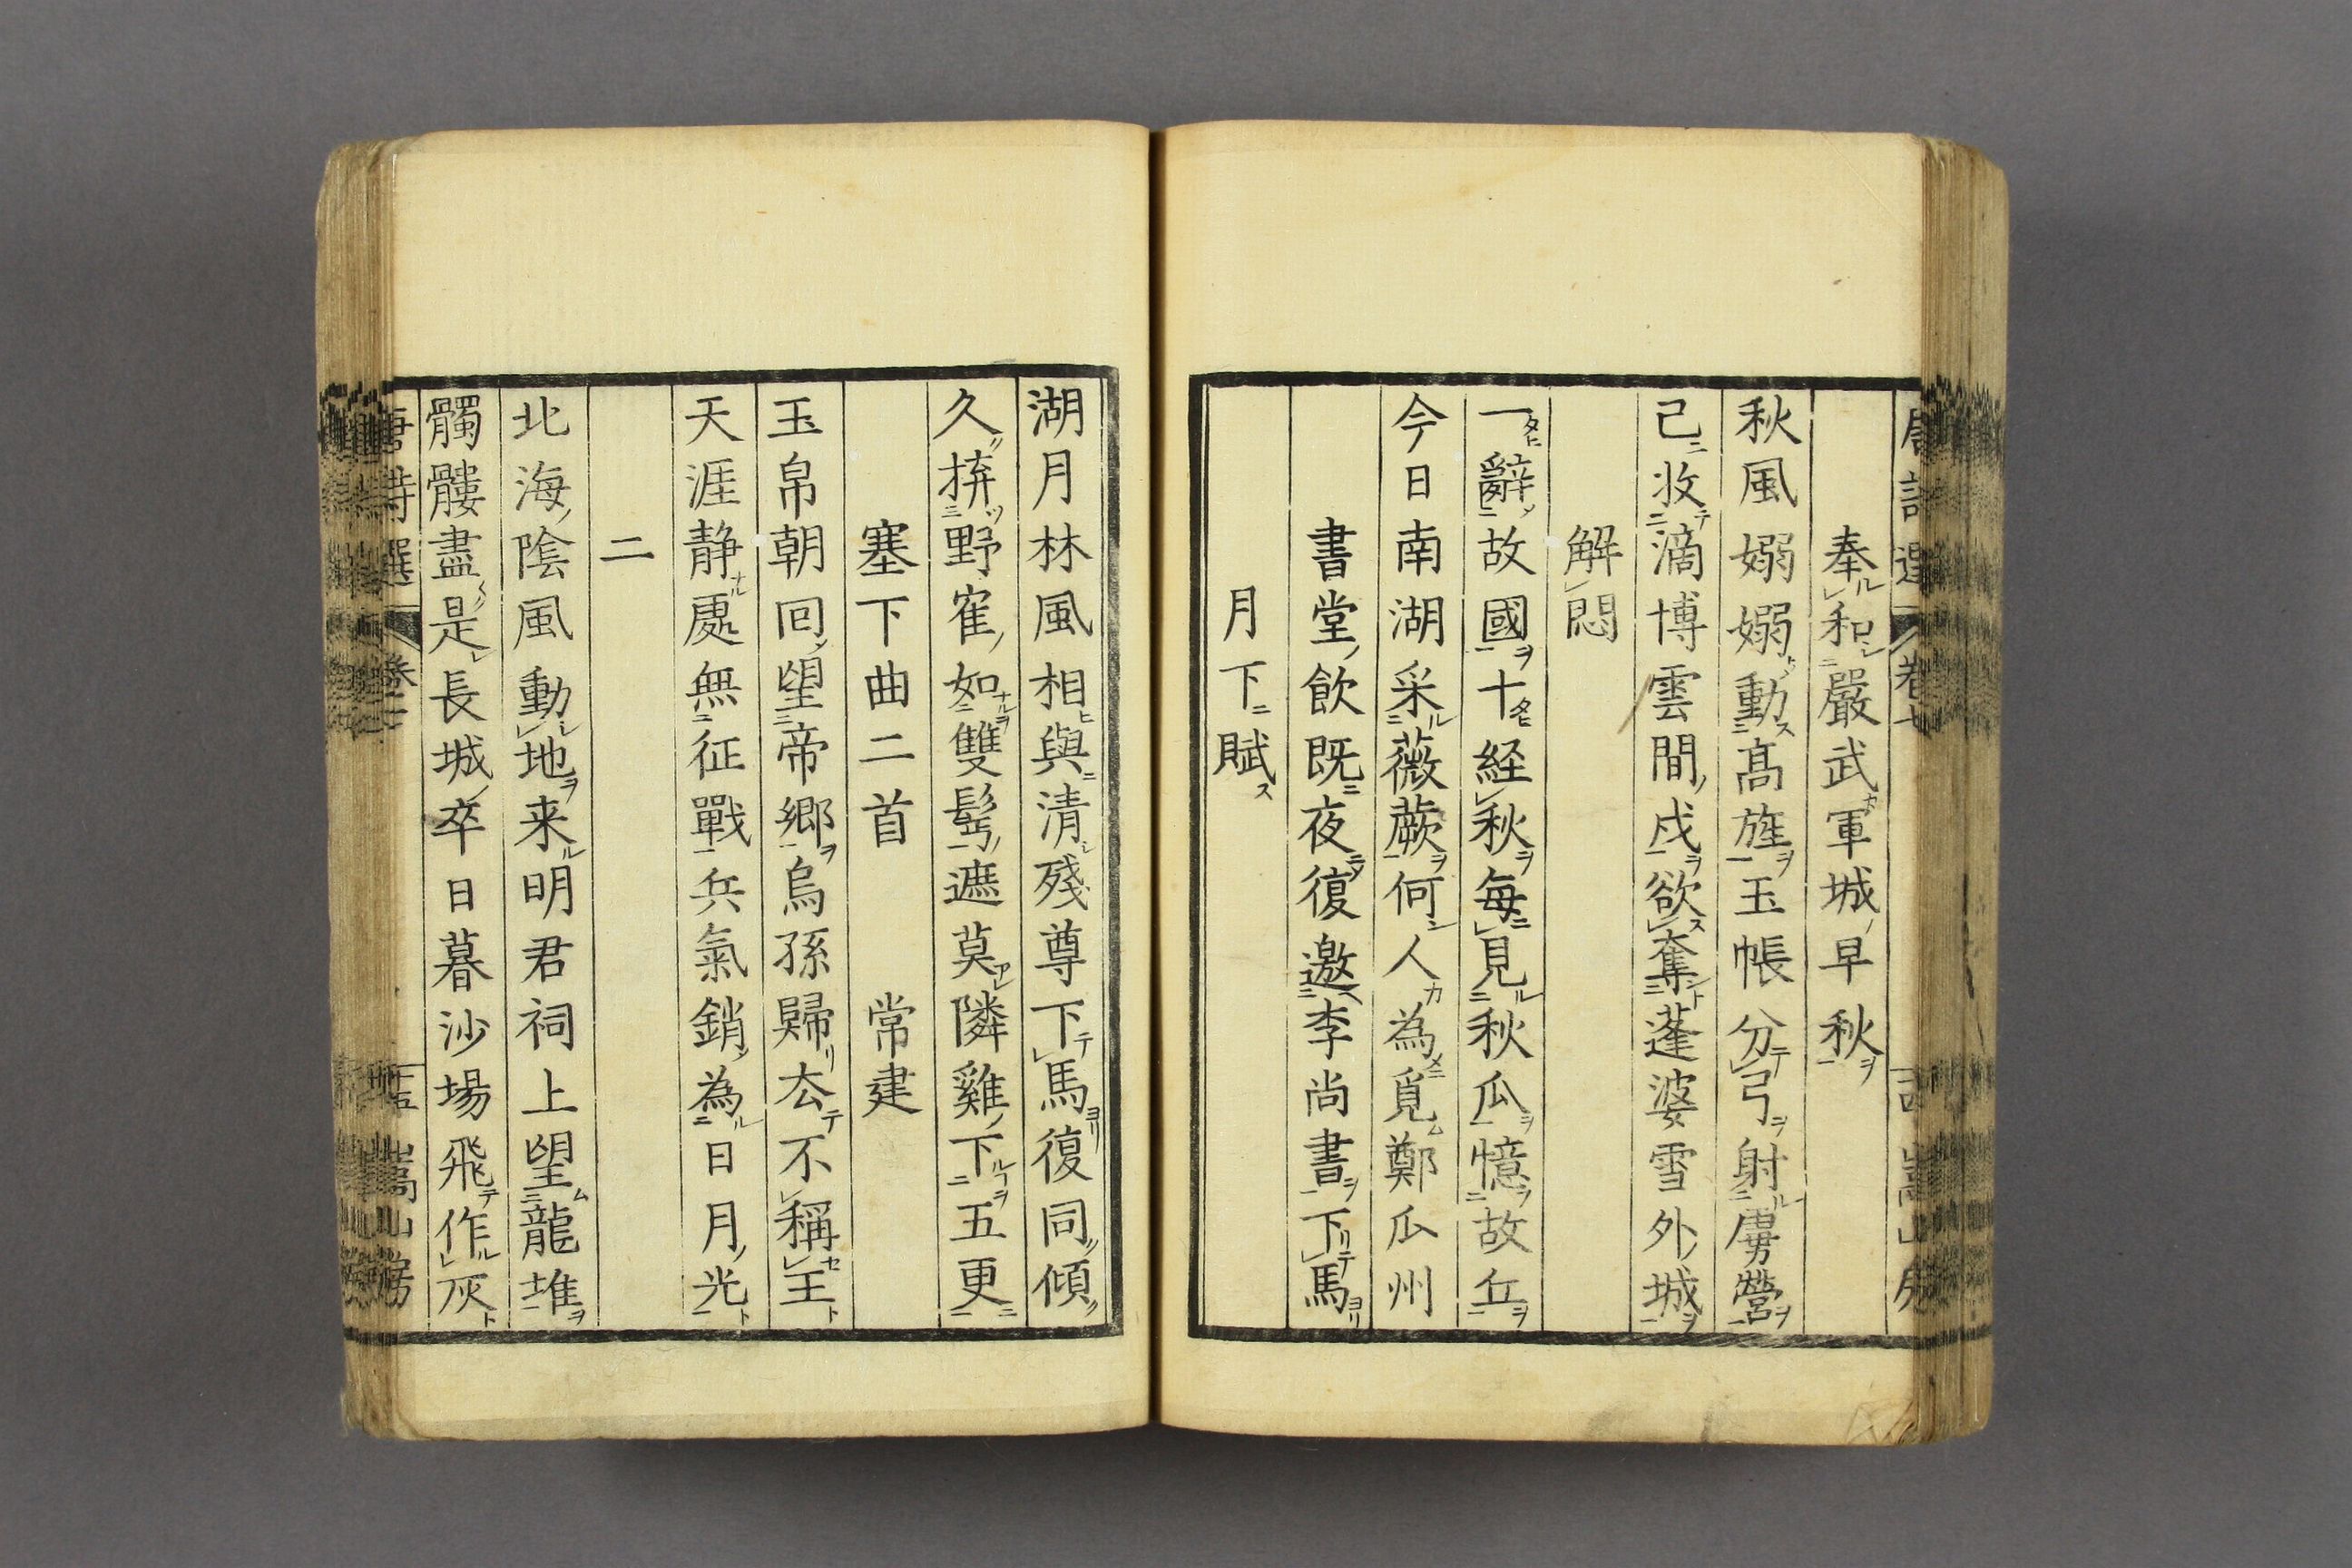 唐詩選 卷七 十四 嵩山房
奉和嚴武軍城早秋
秋風嫋嫋動髙旌玉帳分弓射虜營
已收滴博雲間戍欲奪蓬婆雪外城
解悶
一辭故國十経秋每見秋瓜憶故丘
今日南湖采薇蕨何人為覓鄭瓜州
書堂飲既夜復邀李尚書下馬
月下賦
湖月林風相與清殘尊下馬復同傾
久拚野隺如雙鬢遮莫隣雞下五更
塞下曲二首 常建
玉帛朝回望帝鄉烏孫歸厺不稱王
天涯静處無征戰兵氣銷為日月光
二
北海陰風動地来明君祠上望龍堆
髑髏盡是長城卒日暮沙場飛作灰
唐詩選 卷七 十五 嵩山房